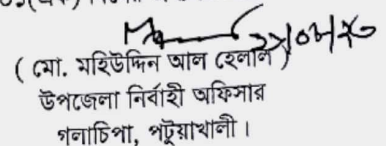 ( মো. মহিউদ্দিন আল হেলাল )
উপজেলা নির্বাহী অফিসার
গলাচিপা, পটুয়াখালী ।